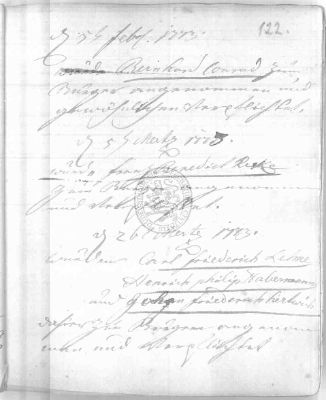 122.
d 5t febr. 1773.
wurde Bernhard Conrad zum
Burger angenommen und
gewöhnlichen Verpflichtet.
d 5t Mertz 1773
wurde franz Benedict
zum Burger angenommen
und Verpflichtet.
d 26 Mertz 1773.
wurden Carl friederich
Henrich philip Habermann
und Johan friederich
dahier zu Burgern angenom
men und Verpflichtet